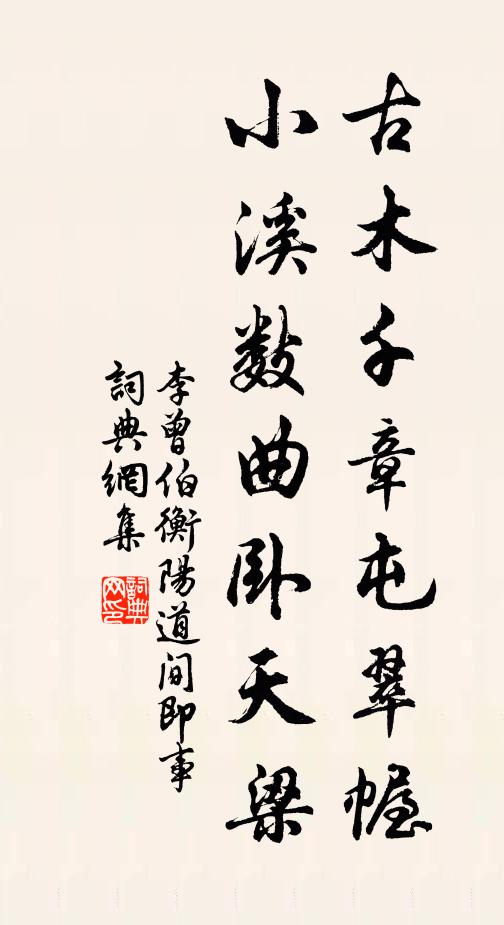 古木千章屯翠幄
小溪数曲卧天梁
李曾伯衡陽道间即事
詞典網集
詞典網印